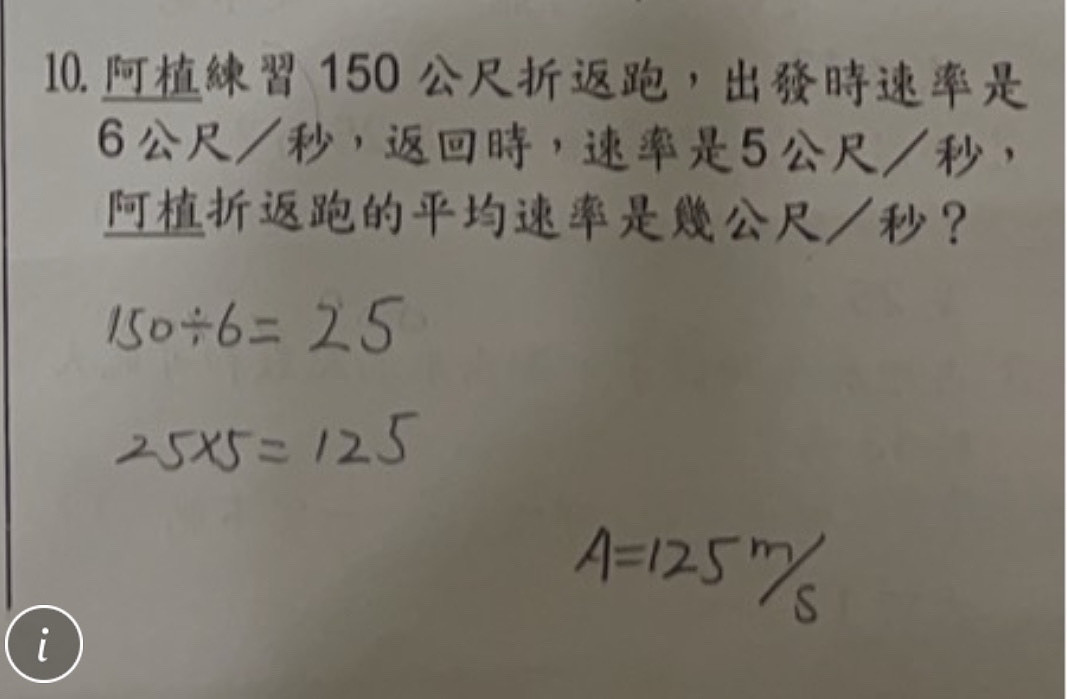 10. 阿植練習 150 公尺折返跑，出發時速率是
6公尺／秒，返回時，速率是5公尺／秒，
阿植折返跑的平均速率是幾公尺／秒？
150÷6= 25
25×5= 125
A=125 m/s
i